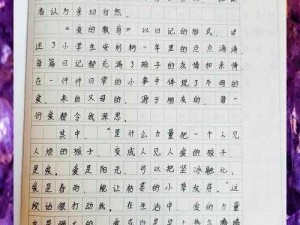 着认与亲切自然。
“爱的教育”以日记的形式，讲
述了小学生安利柯一年里的点点滴滴
每篇日记都充满了孩子的友情和亲情
在一件件日常的小事中体现了不同的
爱。来自父母的，源于朋友的，着一
份爱都令我深思。
其中，“是什么力量把一个人见
人烦的孩子，变成人见人爱的孩子
是爱。爱是阳光，可以把坚冰融化，
爱是春雨，能让枯萎的小草发芽。”这
段话很打动我。在生活中，爱的力量